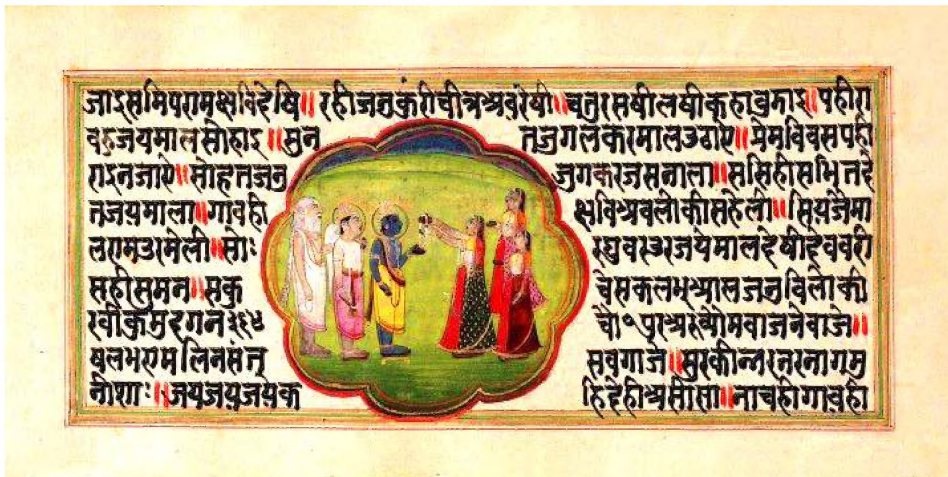 जाइसमिपरामक्षविदेषि॥रहीजनुकुंरीचीत्रअवरेषी॥चतुरसषीलषीकहावुझाइ॥पहीरा
वहुजयमालसोहाइ॥सुन तजुगलकरमालउठाए॥प्रेमविवसपही
राइनजाए॥सोहतजनु जुगकरजसनाला॥ससिहीसभितदे
तजयमाला॥गावही क्षविअवलोकीसहेली॥सियजैमा
लरामउरमेली॥सोः रघुवरउरजयेमालदेषीदेववरी
सहीसुमन॥सकु चेसकलभुआलजनुविलोकी
रवीकुमुदगन२६४ चौ॰पुरअरुव्योमवाजनेवाजे॥
षलभएमलिनसंत् सवगाजे॥सुरकीन्नरनरनागमु
नीशाः॥जयजयजयक हिदेहीअसीसा॥नाचहीगावही